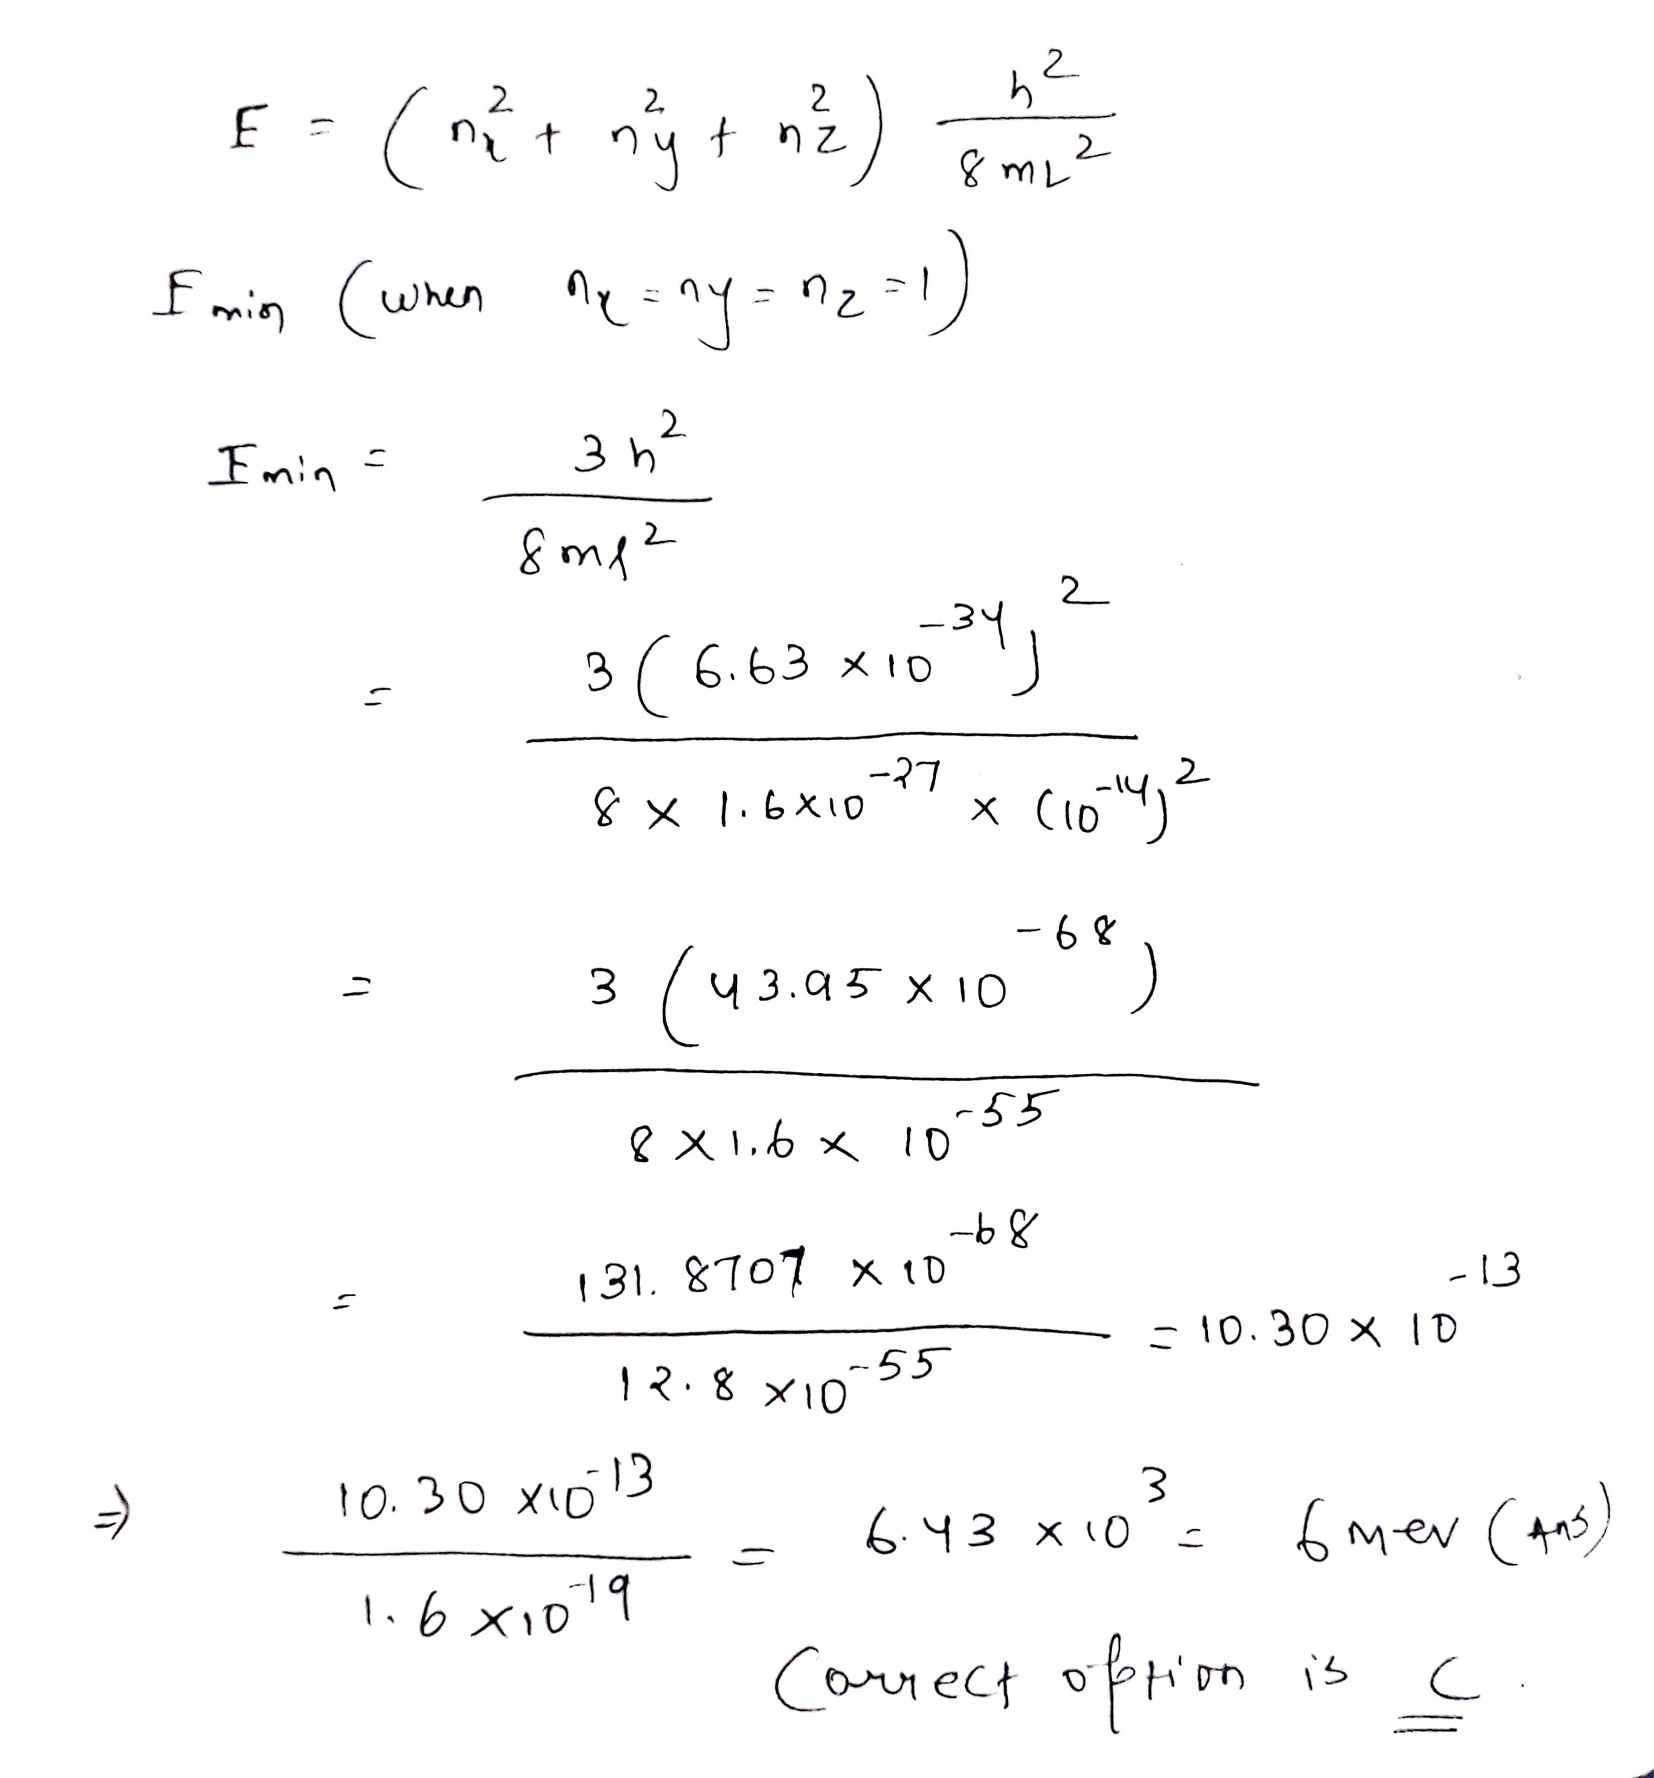 E = (nx² + ny² + nz²) h² / 8mL²
Emin (when nx = ny = nz = 1)
Emin = 3h² / 8ml²
= 3(6.63 × 10⁻³⁴)² / 8 × 1.6×10⁻²⁷ × (10⁻¹⁴)²
= 3(43.95 × 10⁻⁶⁸) / 8 × 1.6 × 10⁻⁵⁵
= 131.8707 × 10⁻⁶⁸ / 12.8 × 10⁻⁵⁵ = 10.30 × 10⁻¹³
⇒ 10.30 × 10⁻¹³ / 1.6 × 10⁻¹⁹ = 6.43 × 10³ = 6 Mev (Ans)
Correct option is C.